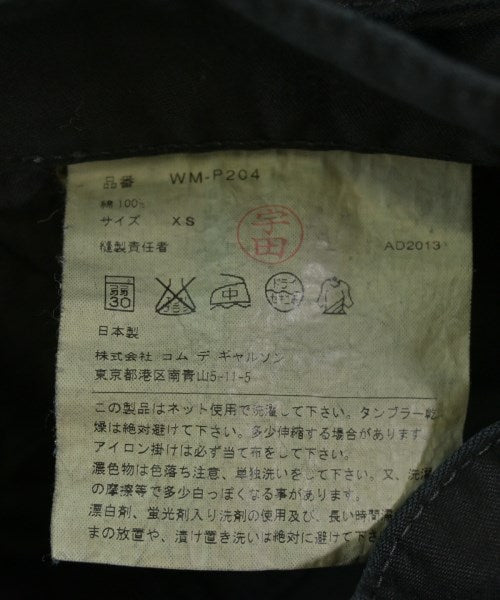 品番 WM-P204
綿 100%
サイズ XS
縫製責任者 宇田 AD2013
30 中
日本製
株式会社 コム デ ギャルソン
東京都港区南青山5-11-5
この製品はネット使用で洗濯して下さい。タンブラー乾
燥は絶対避けて下さい。多少伸縮する場合があります。
アイロン掛けは必ず当て布をして下さい。
濃色物は色落ち注意、単独洗いをして下さい。又、洗濯
の摩擦等で多少白っぽくなる事があります。
漂白剤、蛍光剤入り洗剤の使用及び、長い時間
まの放置や、漬け置き洗いは絶対に避けて下さ